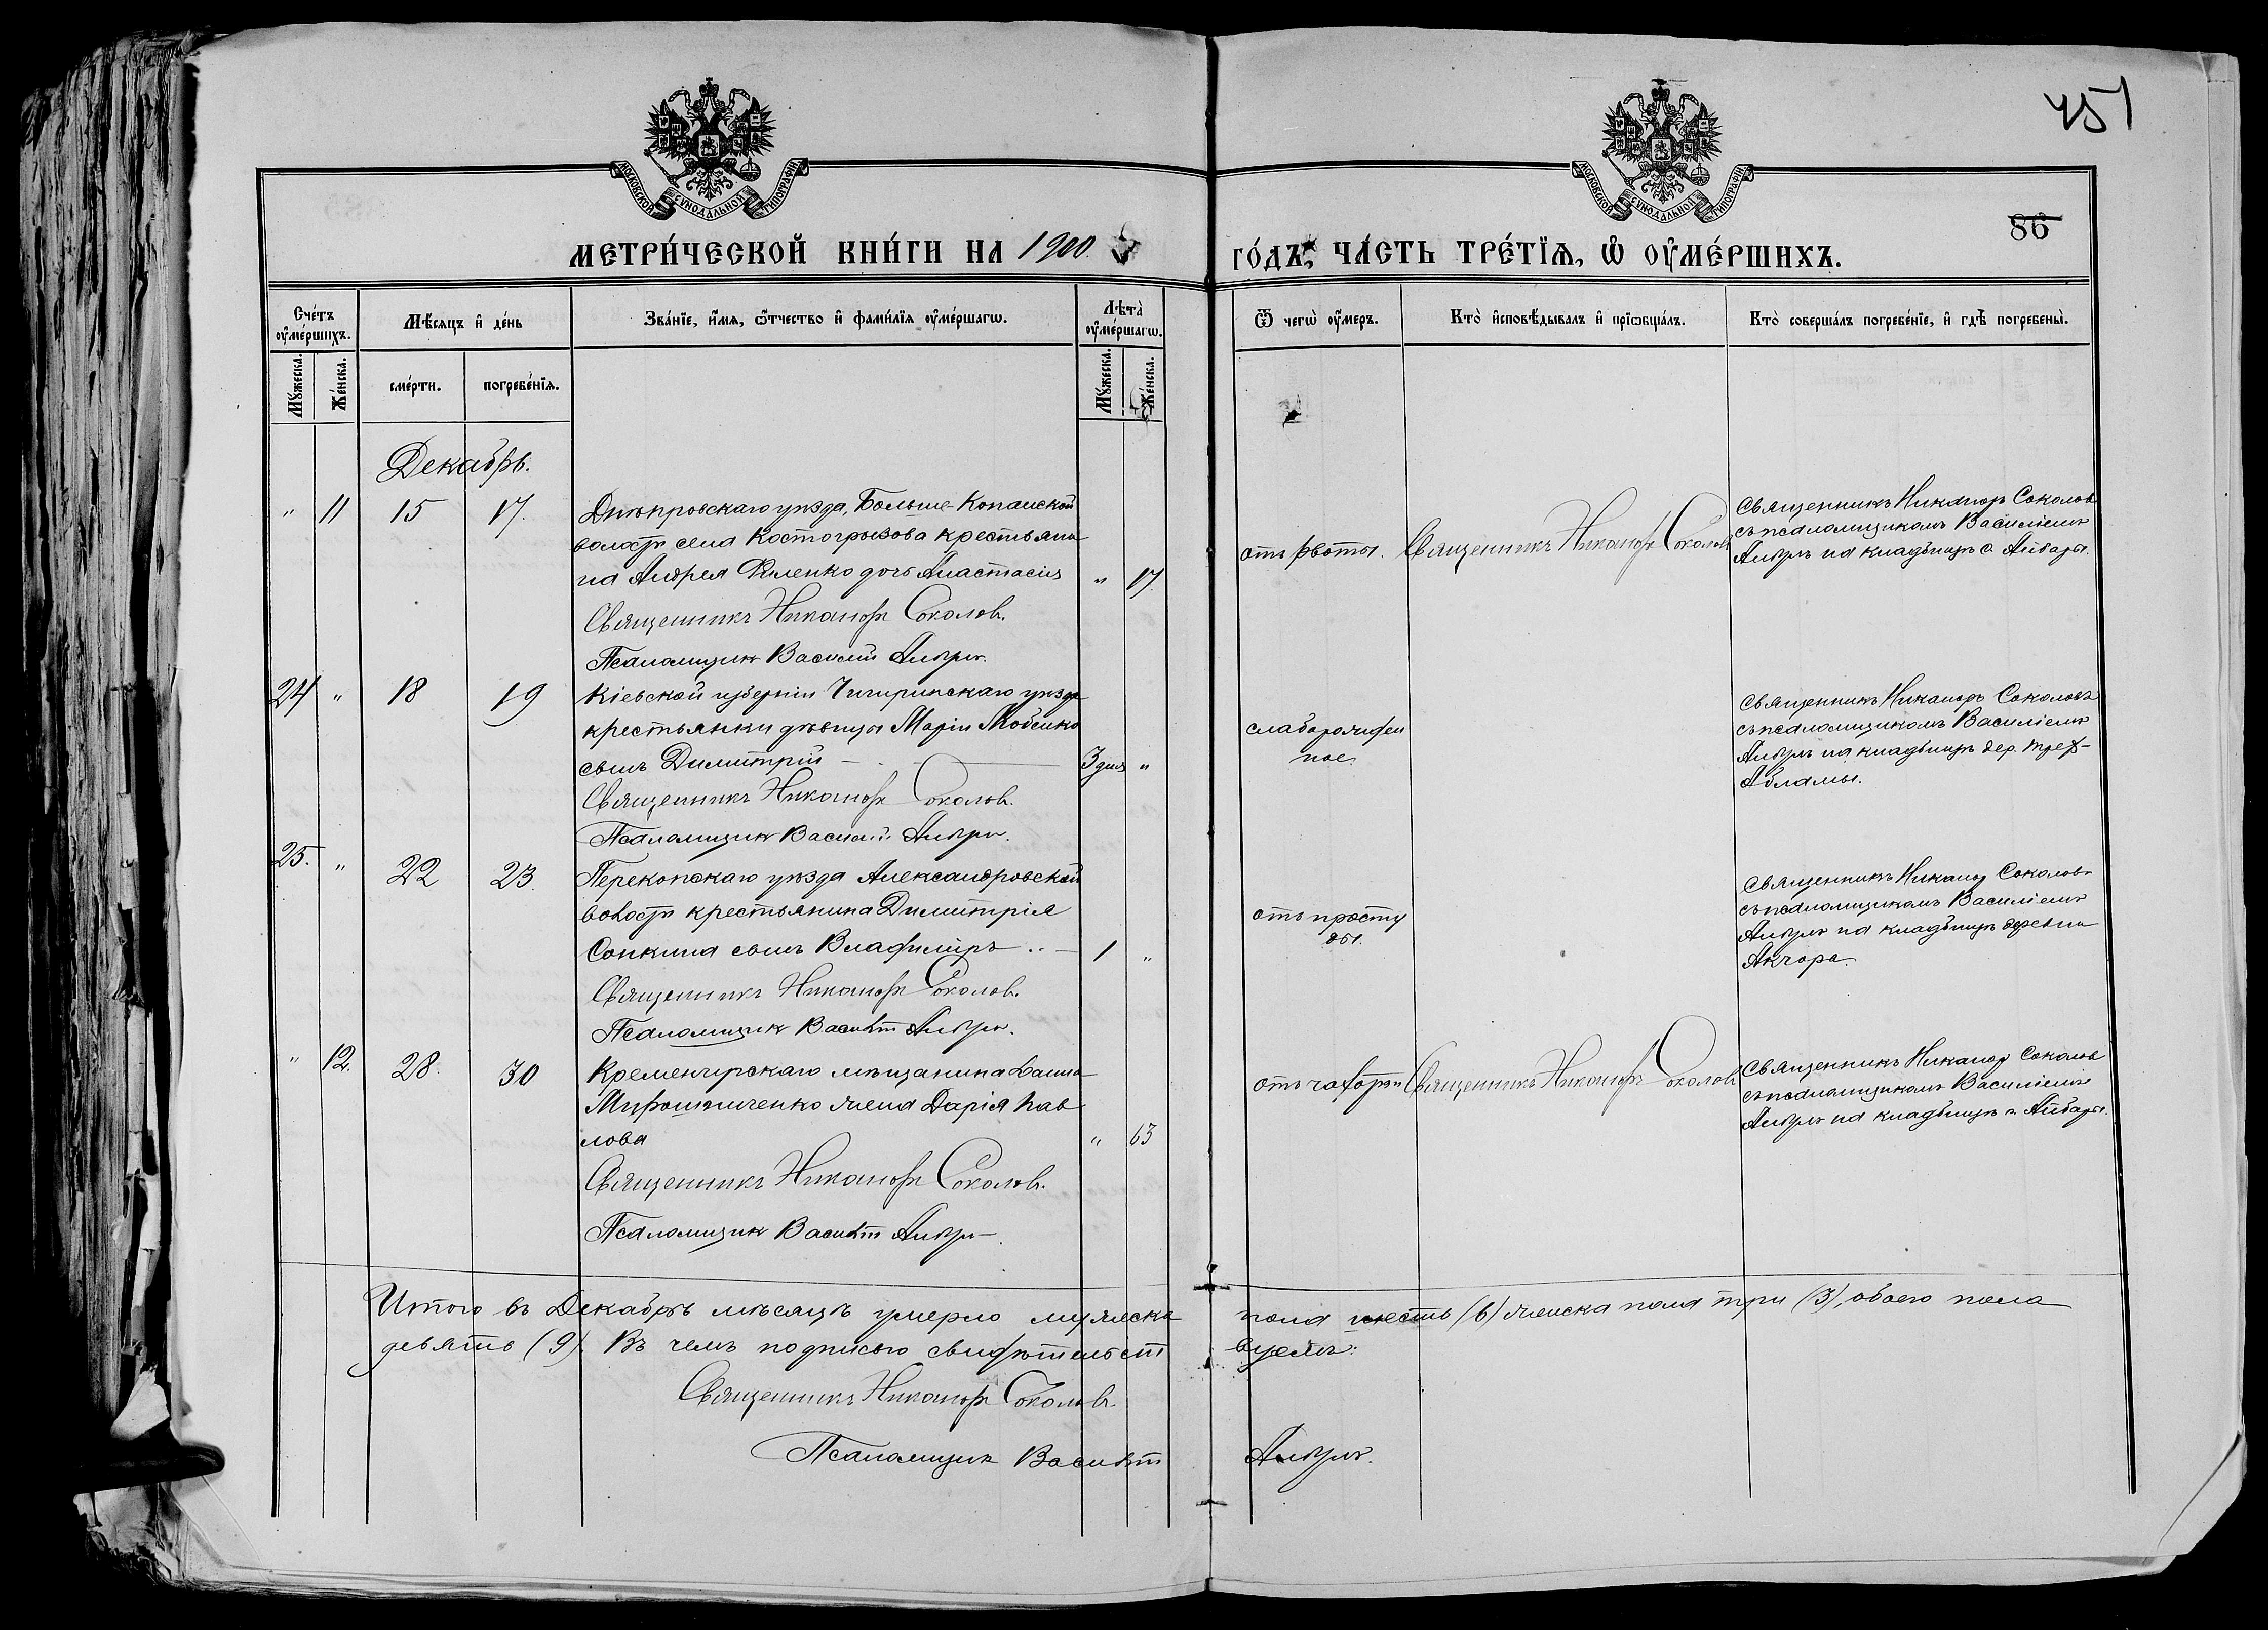 451
МОСКОВСКОЙ СѴНОДАЛЬНОЙ ТИПОГРАФІИ
МОСКОВСКОЙ СѴНОДАЛЬНОЙ ТИПОГРАФІИ
86
МЕТРИ́ЧЕСКОЙ КНИ́ГИ НА 1900 ГО́ДЪ, ЧА́СТЬ ТРЕ́ТЇѦ, Ѡ҆ ОУ҆МЕ́РШИХЪ.
Сче́тъ оу҆ме́ршихъ.
Мѣ́сѧцъ и҆ де́нь
Зва́нїе, и҆́мѧ, ѻ҆́тчество и҆ фами́лїѧ оу҆ме́ршагѡ.
Лѣта̀ оу҆ме́ршагѡ.
Ѿ чегѡ̀ оу҆́меръ.
Кто̀ и҆сповѣ́дывалъ и҆ прїѡбща́лъ.
Кто̀ соверша́лъ погребе́нїе, и҆ гдѣ̀ погребены̀.
Мꙋ́жеска.
Же́нска.
сме́рти.
погребе́нїѧ.
Мꙋ́жеска.
Же́нска.
Декабрь.
" 11 15 17. Днѣпровскаго уѣзда, Больше-Копанской
волости села Костогрызова крестьяни
на Андрея Филенко дочь Анастасія " 17.
Священникъ Никаноръ Соколовъ.
Псаломщикъ Василій
отъ рвоты.
Священникъ Никаноръ Соколовъ
Священникъ Никаноръ Соколовъ
съ псаломщикомъ Василіемъ
на кладбищѣ с. Айбары.
24 " 18 19 Кіевской губерніи Чигиринскаго уѣзда
крестьянки дѣвицы Маріи
сынъ Димитрій 3 дня "
Священникъ Никаноръ Соколовъ.
Псаломщикъ Василій
слаборожден
ное.
Священникъ Никаноръ Соколовъ
съ псаломщикомъ Василіемъ
на кладбищѣ дер.
Абламы.
25. " 22 23. Перекопскаго уѣзда Александровской
волости крестьянина Димитрія
Сопкина сынъ Владиміръ 1 "
Священникъ Никаноръ Соколовъ.
Псаломщикъ Василій
отъ просту
ды.
Священникъ Никаноръ Соколовъ
съ псаломщикомъ Василіемъ
на кладбищѣ деревни
Акчора.
" 12. 28. 30 Кременчугскаго мѣщанина
Мирошниченко жена Дарія Пав
лова " 63
Священникъ Никаноръ Соколовъ.
Псаломщикъ Василій
отъ чахотки
Священникъ Никаноръ Соколовъ
Священникъ Никаноръ Соколовъ
съ псаломщикомъ Василіемъ
на кладбищѣ с. Айбары.
Итого въ Декабрѣ мѣсяцѣ умерло мужеска пола шесть (6) женска пола три (3), обоего пола
девять (9). Въ чемъ подписью свидѣтельствуемъ:
Священникъ Никаноръ Соколовъ.
Псаломщикъ Василій